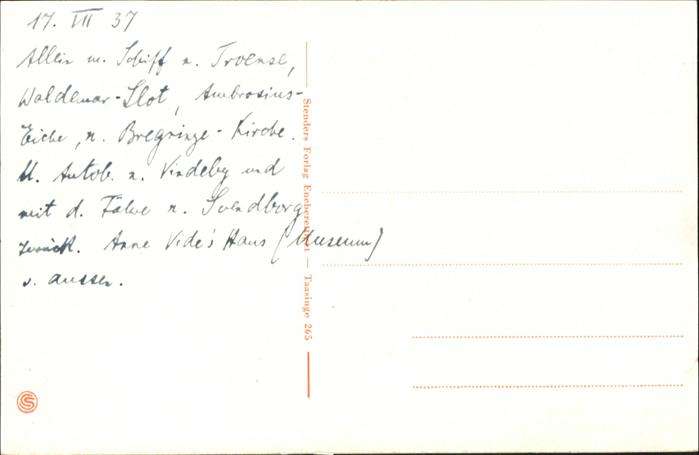 17. VII 37
Allein m. Schiff n. Troense,
Waldemar-Slot, Ambrosius-
Eiche, n. Bregninge-Kirche.
M. Autob. n. Vindeby und
mit d. Fähre n. Svendborg
zurück. Anne Vide's Haus (Museum)
v. aussen.
Stenders Forlag Eneberettiget — Taasinge 265
S